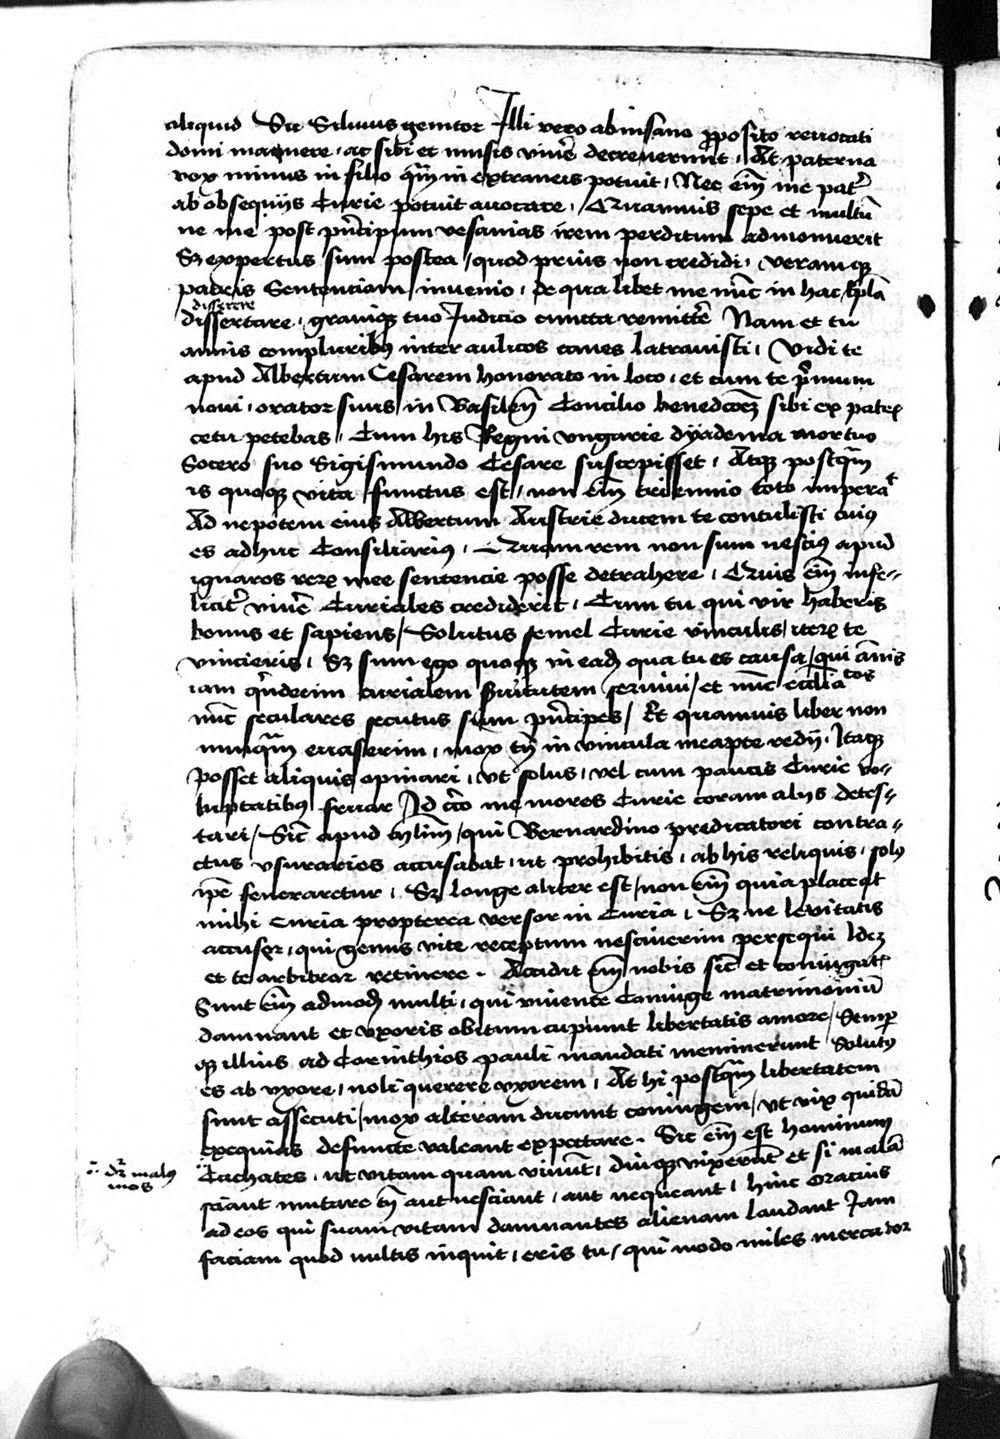 aliquid Sic Siluius genitor Illi vero ab insano ꝓposito reuocati
domi mansere, ac sibi et musis viuē decreuerunt, At paterna
vox minus in filio qm̄ in extraneis potuit, Nec em̄ me pat
ab obsequijs Curie potuit auocare, Quamuis sepe et multū
ne me post pn̄cipum vesanias irem perditum admonuerit
Sꝫ expertus sum postea, quod prius non credidi, veramqꝫ
patris Sententiam inuenio, de qua libet me nūc in hac epl̄a
disserere
dissertare, grauiqꝫ tuo Judicio cuncta remittē Nam et tu
annis compluribꝰ inter aulicos canes latrauisti, Vidi te
apud Albertum Cesarem honorato in loco, et cum te pͥmum
noui, orator suus in Basilen̄ Concilio benedcōꝫ sibi ex patrꝫ
cetu petebas, Cum his Regni vngarie dyadema mortuo
Socero suo Sigismundo Cesare suscepisset, Atqꝫ postqm̄
is quoqꝫ vita functus est, non em̄ triennio toto imperaᵗ
Ad nepotem eius Albertum Austrie ducem te contulisti cuiꝰ
es adhuc Consiliariꝰ, Quam rem non sum nesciꝰ apud
ignaros rerꝫ mee sentencie posse detrahere, Quis em̄ infe-
licit viuē Curiales crediderit, Cum tu qui vir haberis
bonus et sapiens, Solutus semel Curie vinculis, iterꝫ te
vincieris, Sꝫ sum ego quoqꝫ in eadꝫ qua tu es causa, qui an̄is
iam q̄nderim curialem seruitutem seruiui, et nūc ecclīaᵗᵒˢ
nūc seculares secutus sum pn̄cipes, Et quamuis liber non
nunqm̄ euaserim, mox tn̄ in vincula meapte redij, Itaqꝫ
posset aliquis opinari, vt solus, vel cum paucis Curie vo-
luptatibꝰ fruar Id cc̄o me mores Curie coram alijs detes-
tari, Sic apud qui Bernardino predicatori contra-
ctus vsurarios accusabat, ut prohibitis, ab his reliquis, solꝰ
ip̄e feneraretur, Sꝫ longe aliter est, non em̄ quia placeat
mihi Curia propterea versor in Curia, Sꝫ ne leuitatis
accuser, qui genus vite receptum nesciuerim persequi Idꝫ
et te arbitror retinere. Accidit em̄ nobis sic et coniugatꝫ
Sunt em̄ admodꝫ multi, qui viuente Coniuge matrimoniū
damnant et vxoris obitum cupiunt libertatis amore, Semꝑ
qꝫ illius ad Corinthios pauli mandati meminerunt Solutꝰ
es ab vxore, noli querere vxorem, At hi postqm̄ libertatem
sunt assecuti, mox alteram ducunt coniugem, vt vix quidā
exequias defuncte valeant expectare. Sic em̄ est hominum
Cachates, ut vitam quam viuūt, diuqꝫ vixerūt et si malā
sciant mutare tn̄ aut nesciant, aut nequeant, hinc Oracius
ad eos qui suam vitam damnantes alienam laudant Jam
faciam quod vultis inquit, eris tu, qui modo miles mercator
malꝰ
mos